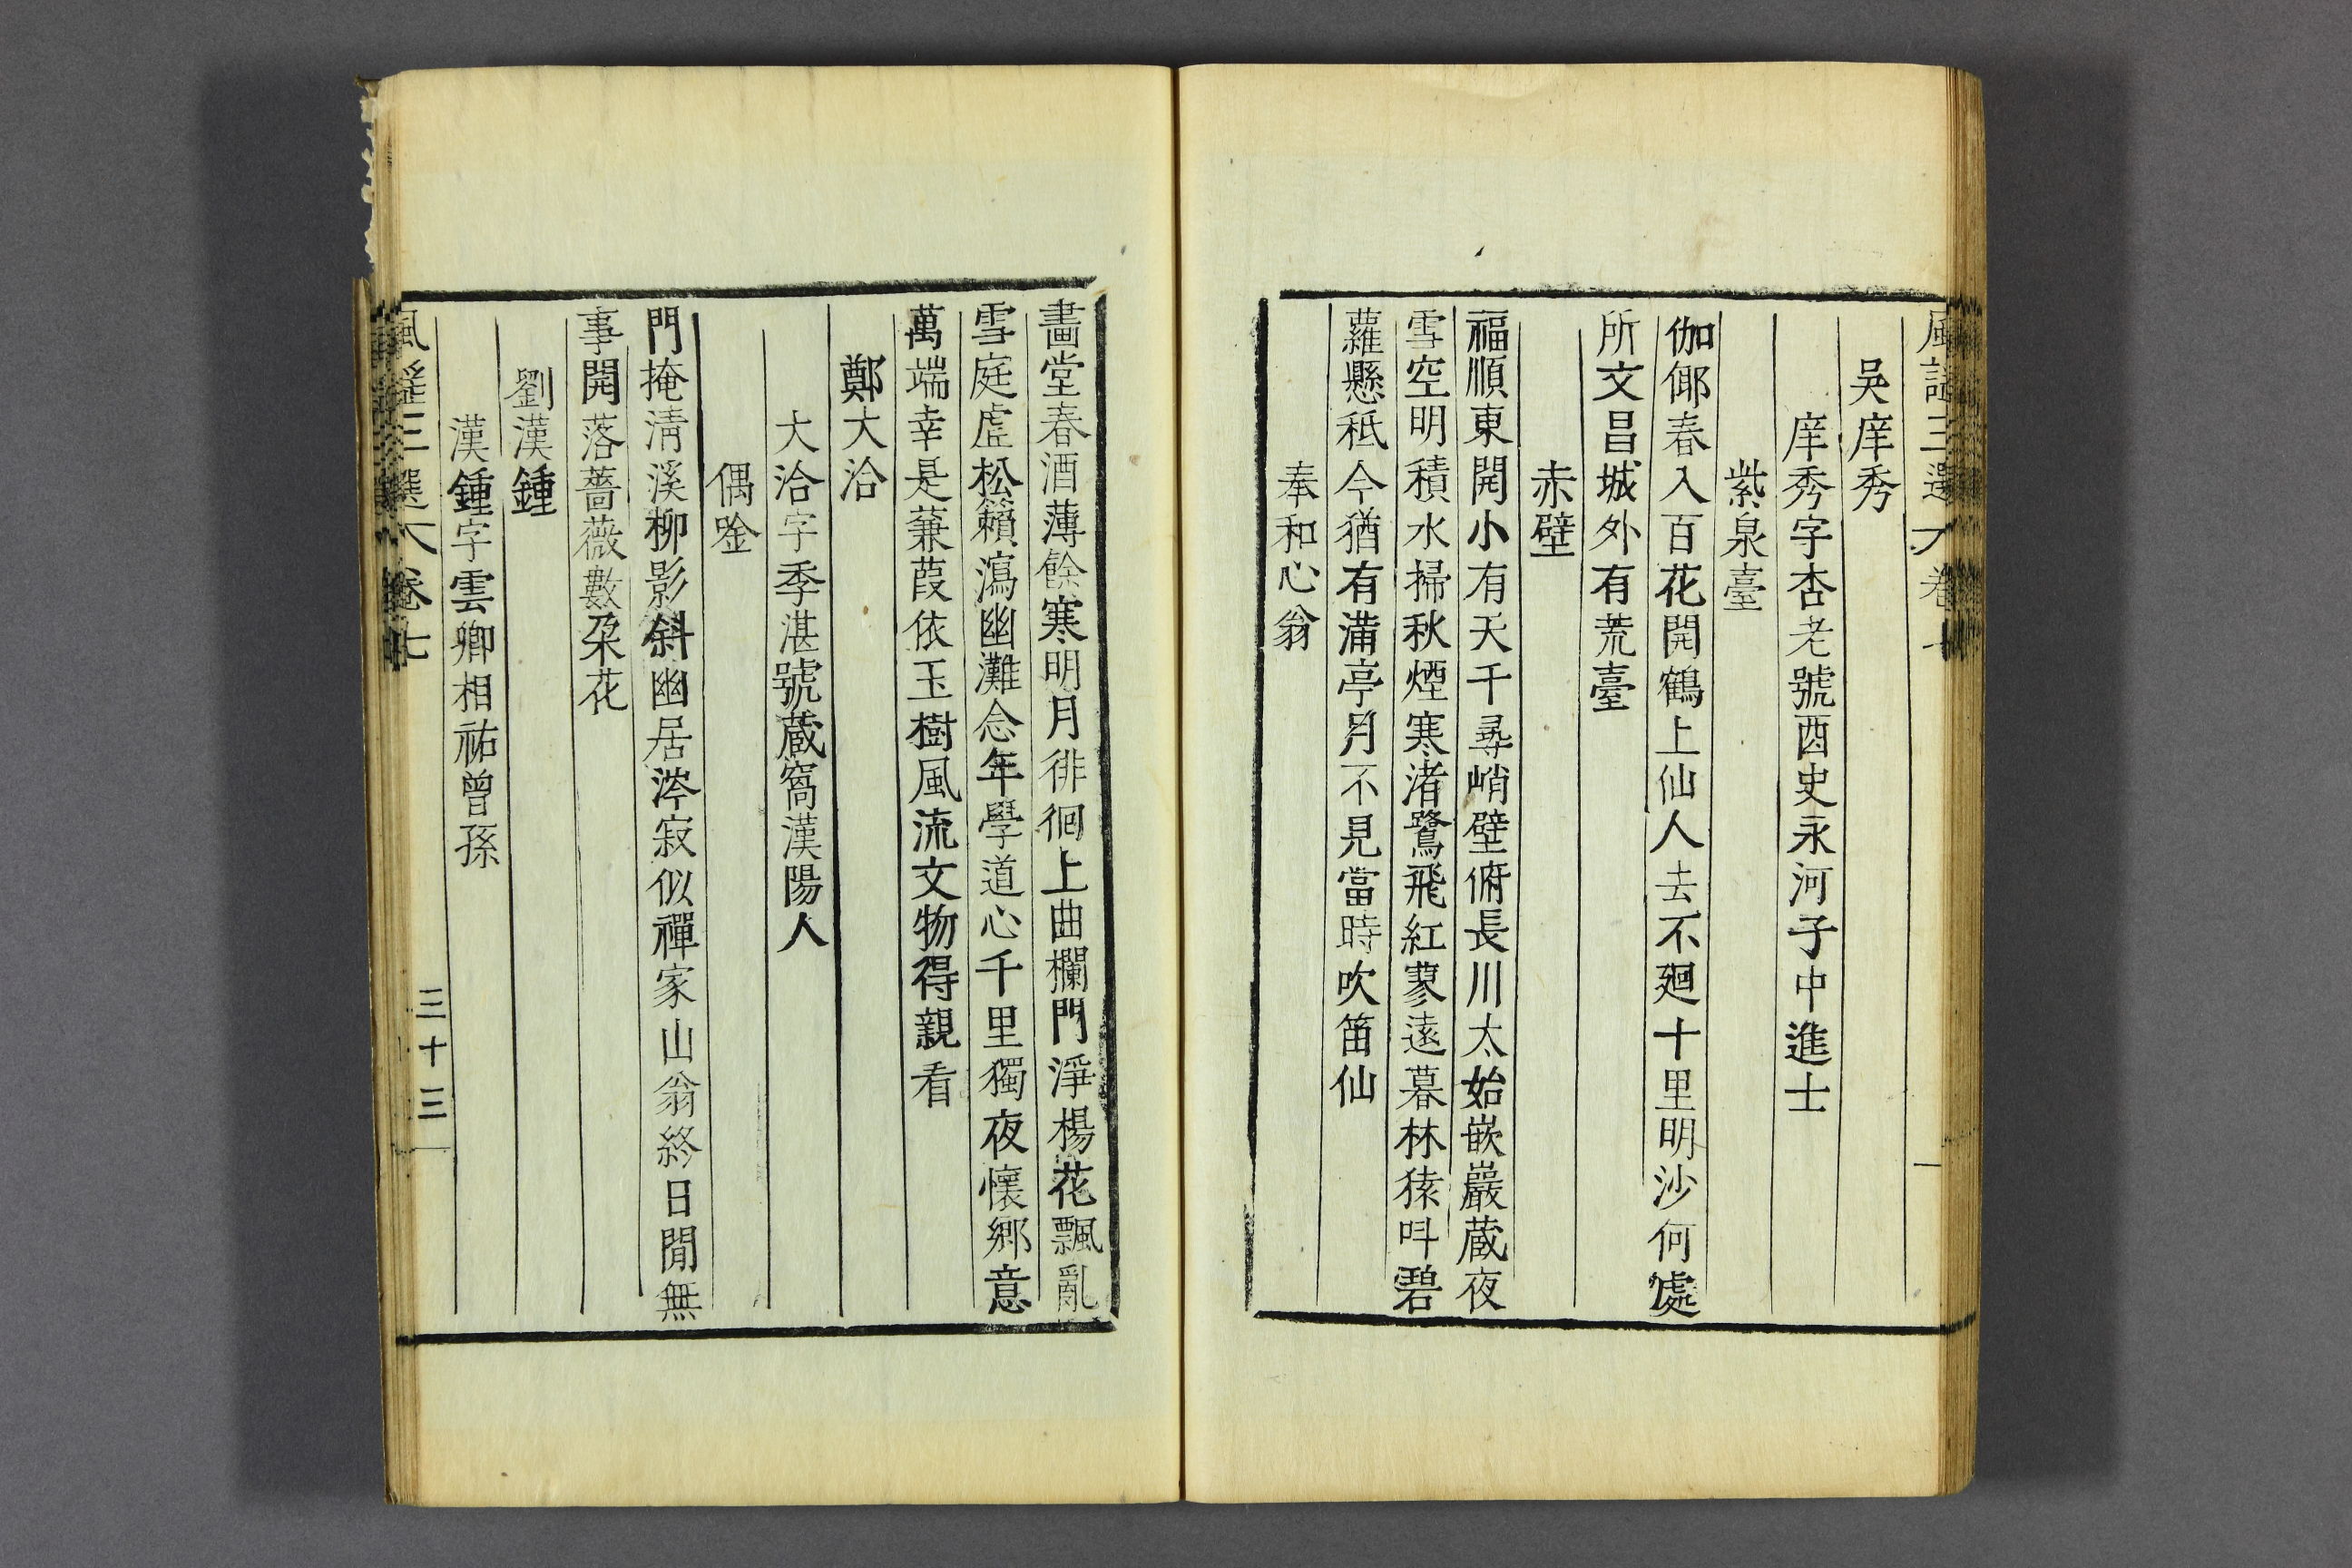 風謠三選 卷七
吳庠秀
庠秀字杏老號酉史永河子中進士
紫泉臺
伽倻春入百花開鶴上仙人去不廻十里明沙何處
所文昌城外有荒臺
赤壁
福順東開小有天千尋峭壁俯長川太始嵌巖蔵夜
雪空明積水掃秋煙寒渚鷺飛紅蓼遠暮林猿呌碧
蘿懸秖今猶有滿亭月不見當時吹笛仙
奉和心翁
畵堂春酒薄餘寒明月徘徊上曲欄門淨楊花飄亂
雪庭虛松籟瀉幽灘念年學道心千里獨夜懷鄉意
萬端幸是蒹葭依玉樹風流文物得親看
鄭大洽
大洽字季湛號蔵窩漢陽人
偶唫
門掩淸溪柳影斜幽居涔寂似禪家山翁終日閒無
事開落薔薇數朶花
劉漢鍾
漢鍾字雲卿相祐曾孫
風謠三選 卷七
三十三